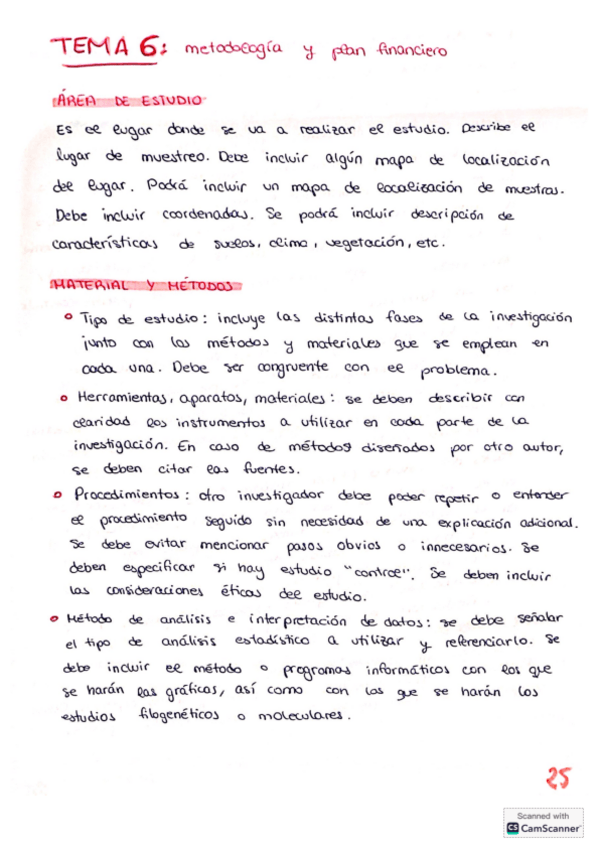 TEMA 6: metodología y plan financiero
ÁREA DE ESTUDIO
Es el lugar donde se va a realizar el estudio. Describe el
lugar de muestreo. Debe incluir algún mapa de localización
del lugar. Podrá incluir un mapa de localización de muestras.
Debe incluir coordenadas. Se podrá incluir descripción de
características de suelos, clima, vegetación, etc.
MATERIAL Y MÉTODOS
Tipo de estudio: incluye las distintas fases de la investigación
junto con los métodos y materiales que se emplean en
cada una. Debe ser congruente con el problema.
Herramientas, aparatos, materiales: se deben describir con
claridad los instrumentos a utilizar en cada parte de la
investigación. En caso de métodos diseñados por otro autor,
se deben citar las fuentes.
Procedimientos: otro investigador debe poder repetir o entender
el procedimiento seguido sin necesidad de una explicación adicional.
Se debe evitar mencionar pasos obvios o innecesarios. Se
deben especificar si hay estudio "control". Se deben incluir
las consideraciones éticas del estudio.
Método de análisis e interpretación de datos: se debe señalar
el tipo de análisis estadístico a utilizar y referenciarlo. Se
debe incluir el método o programas informáticos con los que
se harán las gráficas, así como con los que se harán los
estudios filogenéticos o moleculares.
25
Scanned with
CS CamScanner